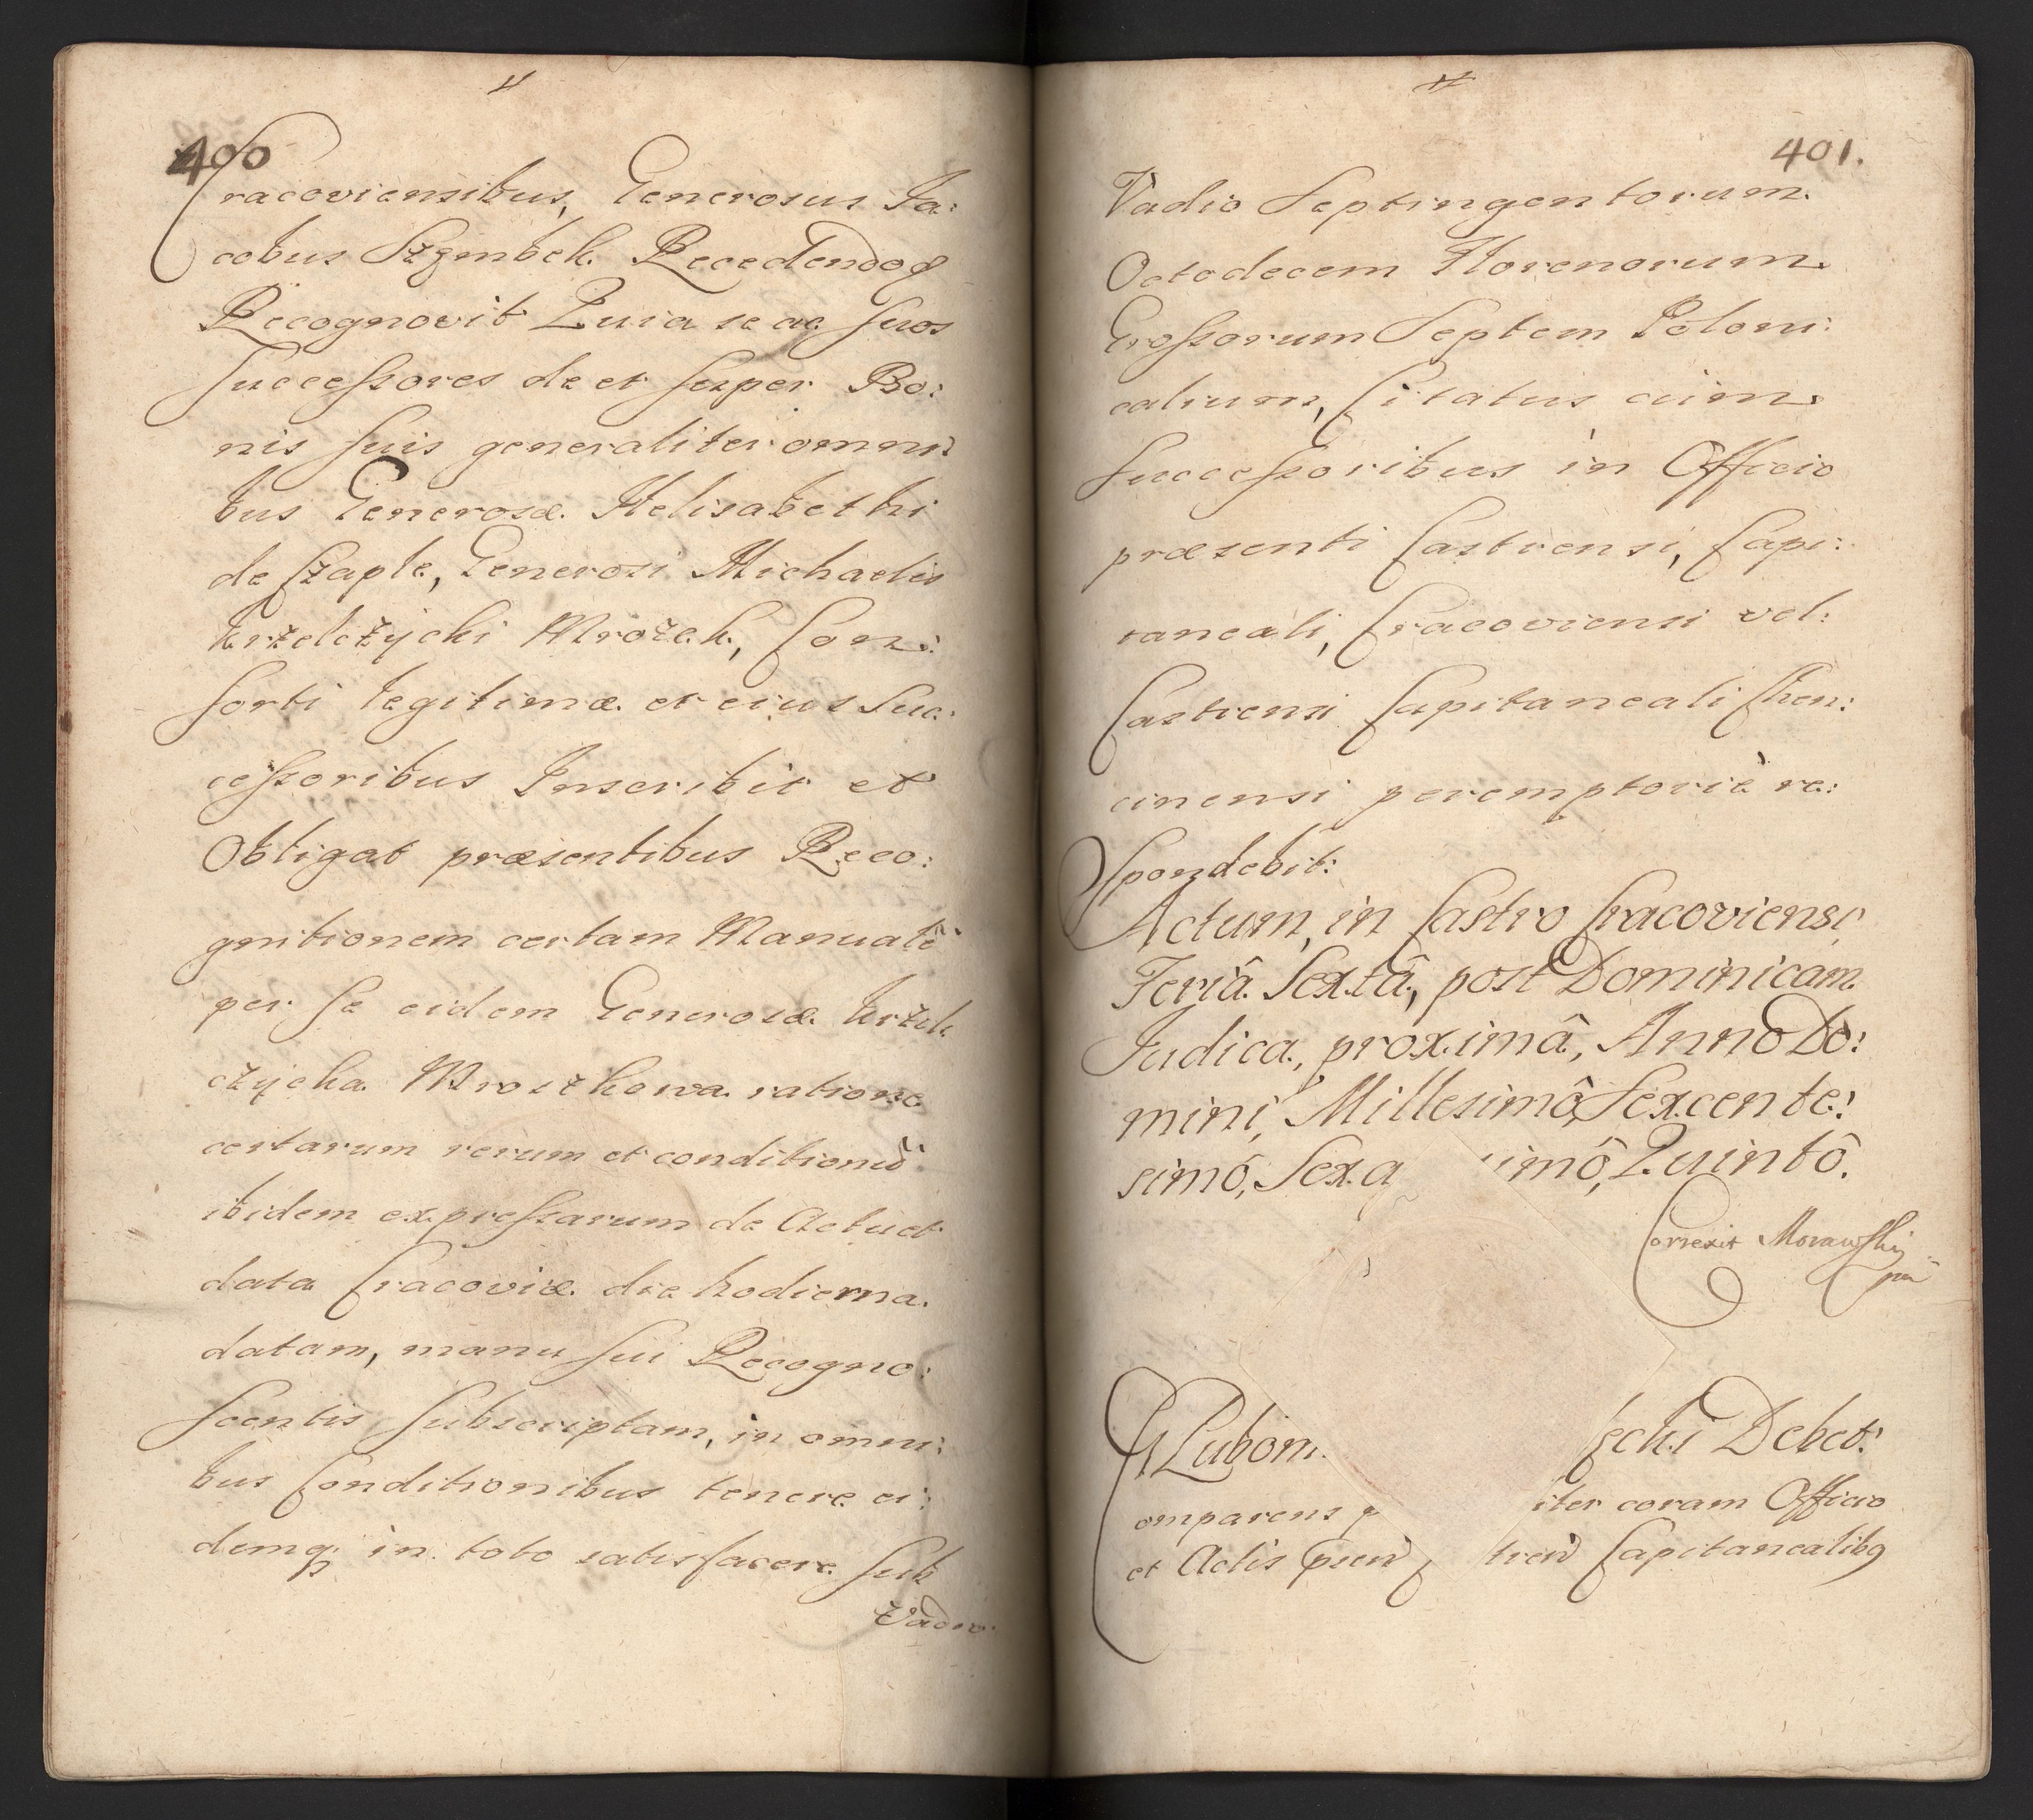 400
Cracoviensibus, Generosus Ja:
cobus Szembek. Recedendoq
Recognovit Quia se ac suos
Successores de et super Bo:
nis suis generaliter omni:
bus Generosæ Helisabethi
de Czaple, Generosi Michaelis
Krzelczycki Mrozek, Con:
sorti legitimæ et eius Suc:
cessoribus Inscribit et
Obligat præsentibus Reco:
gnitionem certam Manualẽ
per se eidem Generosæ Krzel
czycka Mroszkowa ratione
certarum rerum et conditionũ
ibidem expressarum de Actu et
data Cracoviæ die hodierna
datam, manu sui Recogno:
scentis subscriptam, in omni:
bus Conditionibus tenere ei:
demq; in toto satisfacere Sub
Vadio
401.
Vadio Septingentorum
Octodecem Florenorum
Grossorum Septem Poloni:
calium, Citatus cum
Successoribus in Officio
præsenti Castrensi, Capi:
taneali, Cracoviensi vel:
Castrensi Capitaneali Chen:
cinensi peremptoriè re:
spondebit:
Actum, in Castro Cracoviensi,
Feriâ Sextâ, post Dominicam
Judica, proximâ, Anno Do:
mini, Millesimô, Sexcente:
simô, Sexa imô, Quintô.
Correxit Morawski
mp
G Lubom. ecki Debet:
omparens p iter coram Officio
et Actis pñ trẽ Capitanealibq